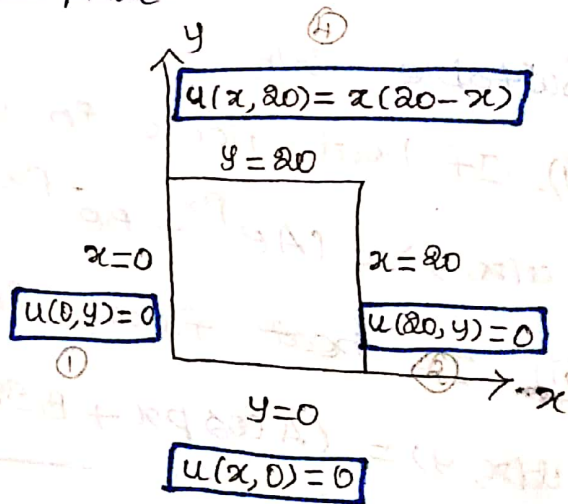 y
④
u(x, 20) = x(20-x)
y = 20
x=0
x=20
u(0,y)=0
u(20,y)=0
①
②
x
y=0
u(x,0)=0